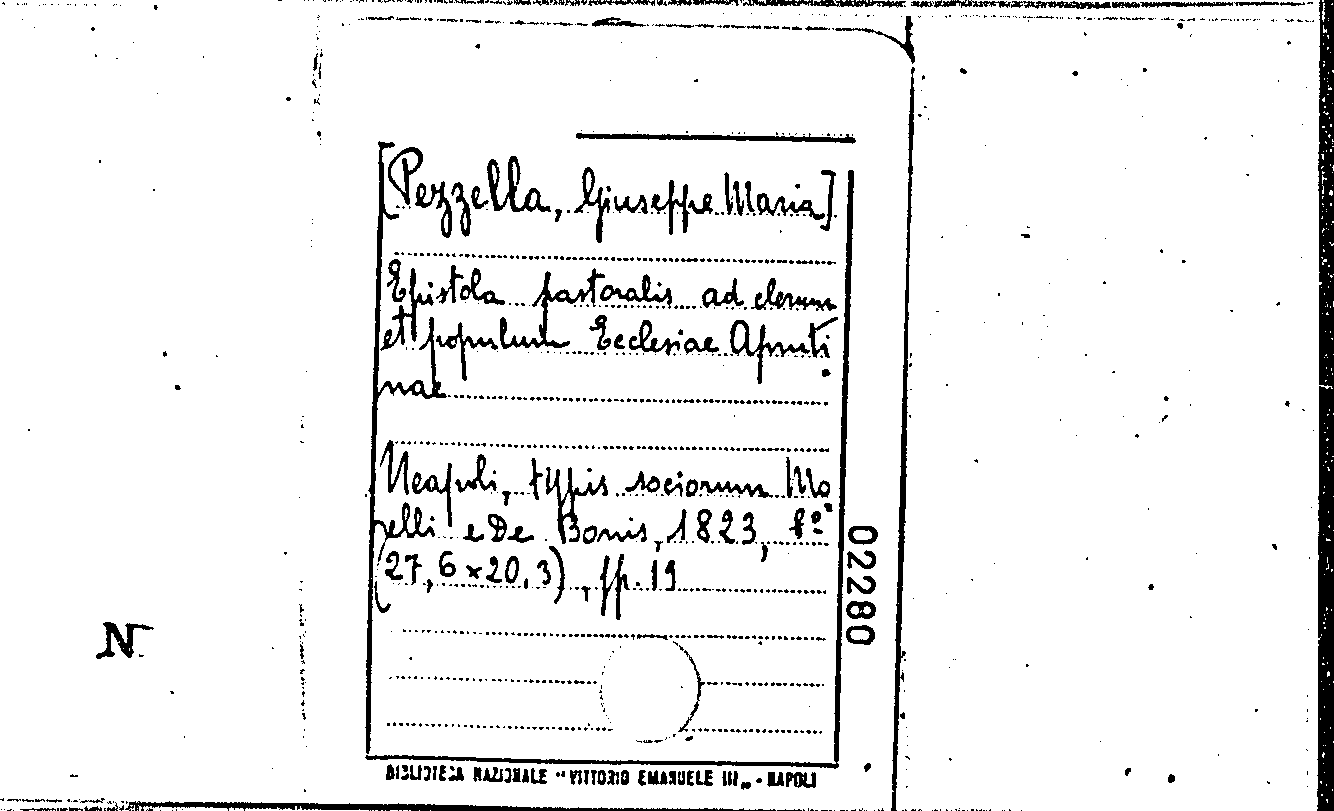 [Pezzella, Giuseppe Maria]
Epistola pastoralis ad clerum
et populum Ecclesiae Aprruti
nae
Neapoli, typis sociorum Mo
relli e De Bonis, 1823, fº
(27,6 × 20,3), pp. 19
02280
N
BIBLIOTECA NAZIONALE "VITTORIO EMANUELE III„ - NAPOLI